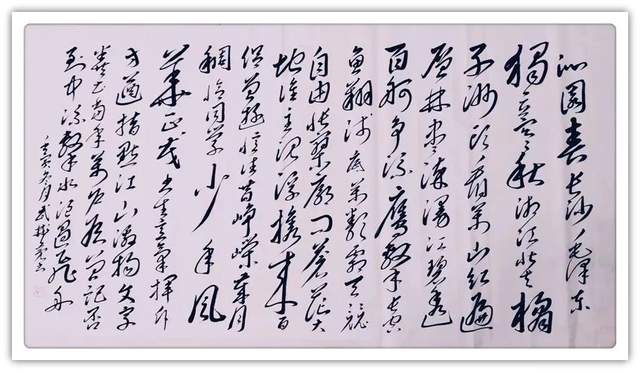 沁园春长沙毛泽东
獨立寒秋湘江北去橘
子洲头看万山红遍
层林尽染漫江碧透
百舸争流鹰击长空
鱼翔浅底万类霜天競
自由怅寥廓问苍茫大
地谁主沉浮携来百
侣曾游忆往昔峥嵘岁月
稠恰同学少年风
華正茂书生意气挥斥
方遒指点江山激扬文字
粪土当年万户侯曾记否
到中流击水浪遏飞舟
壬寅冬月